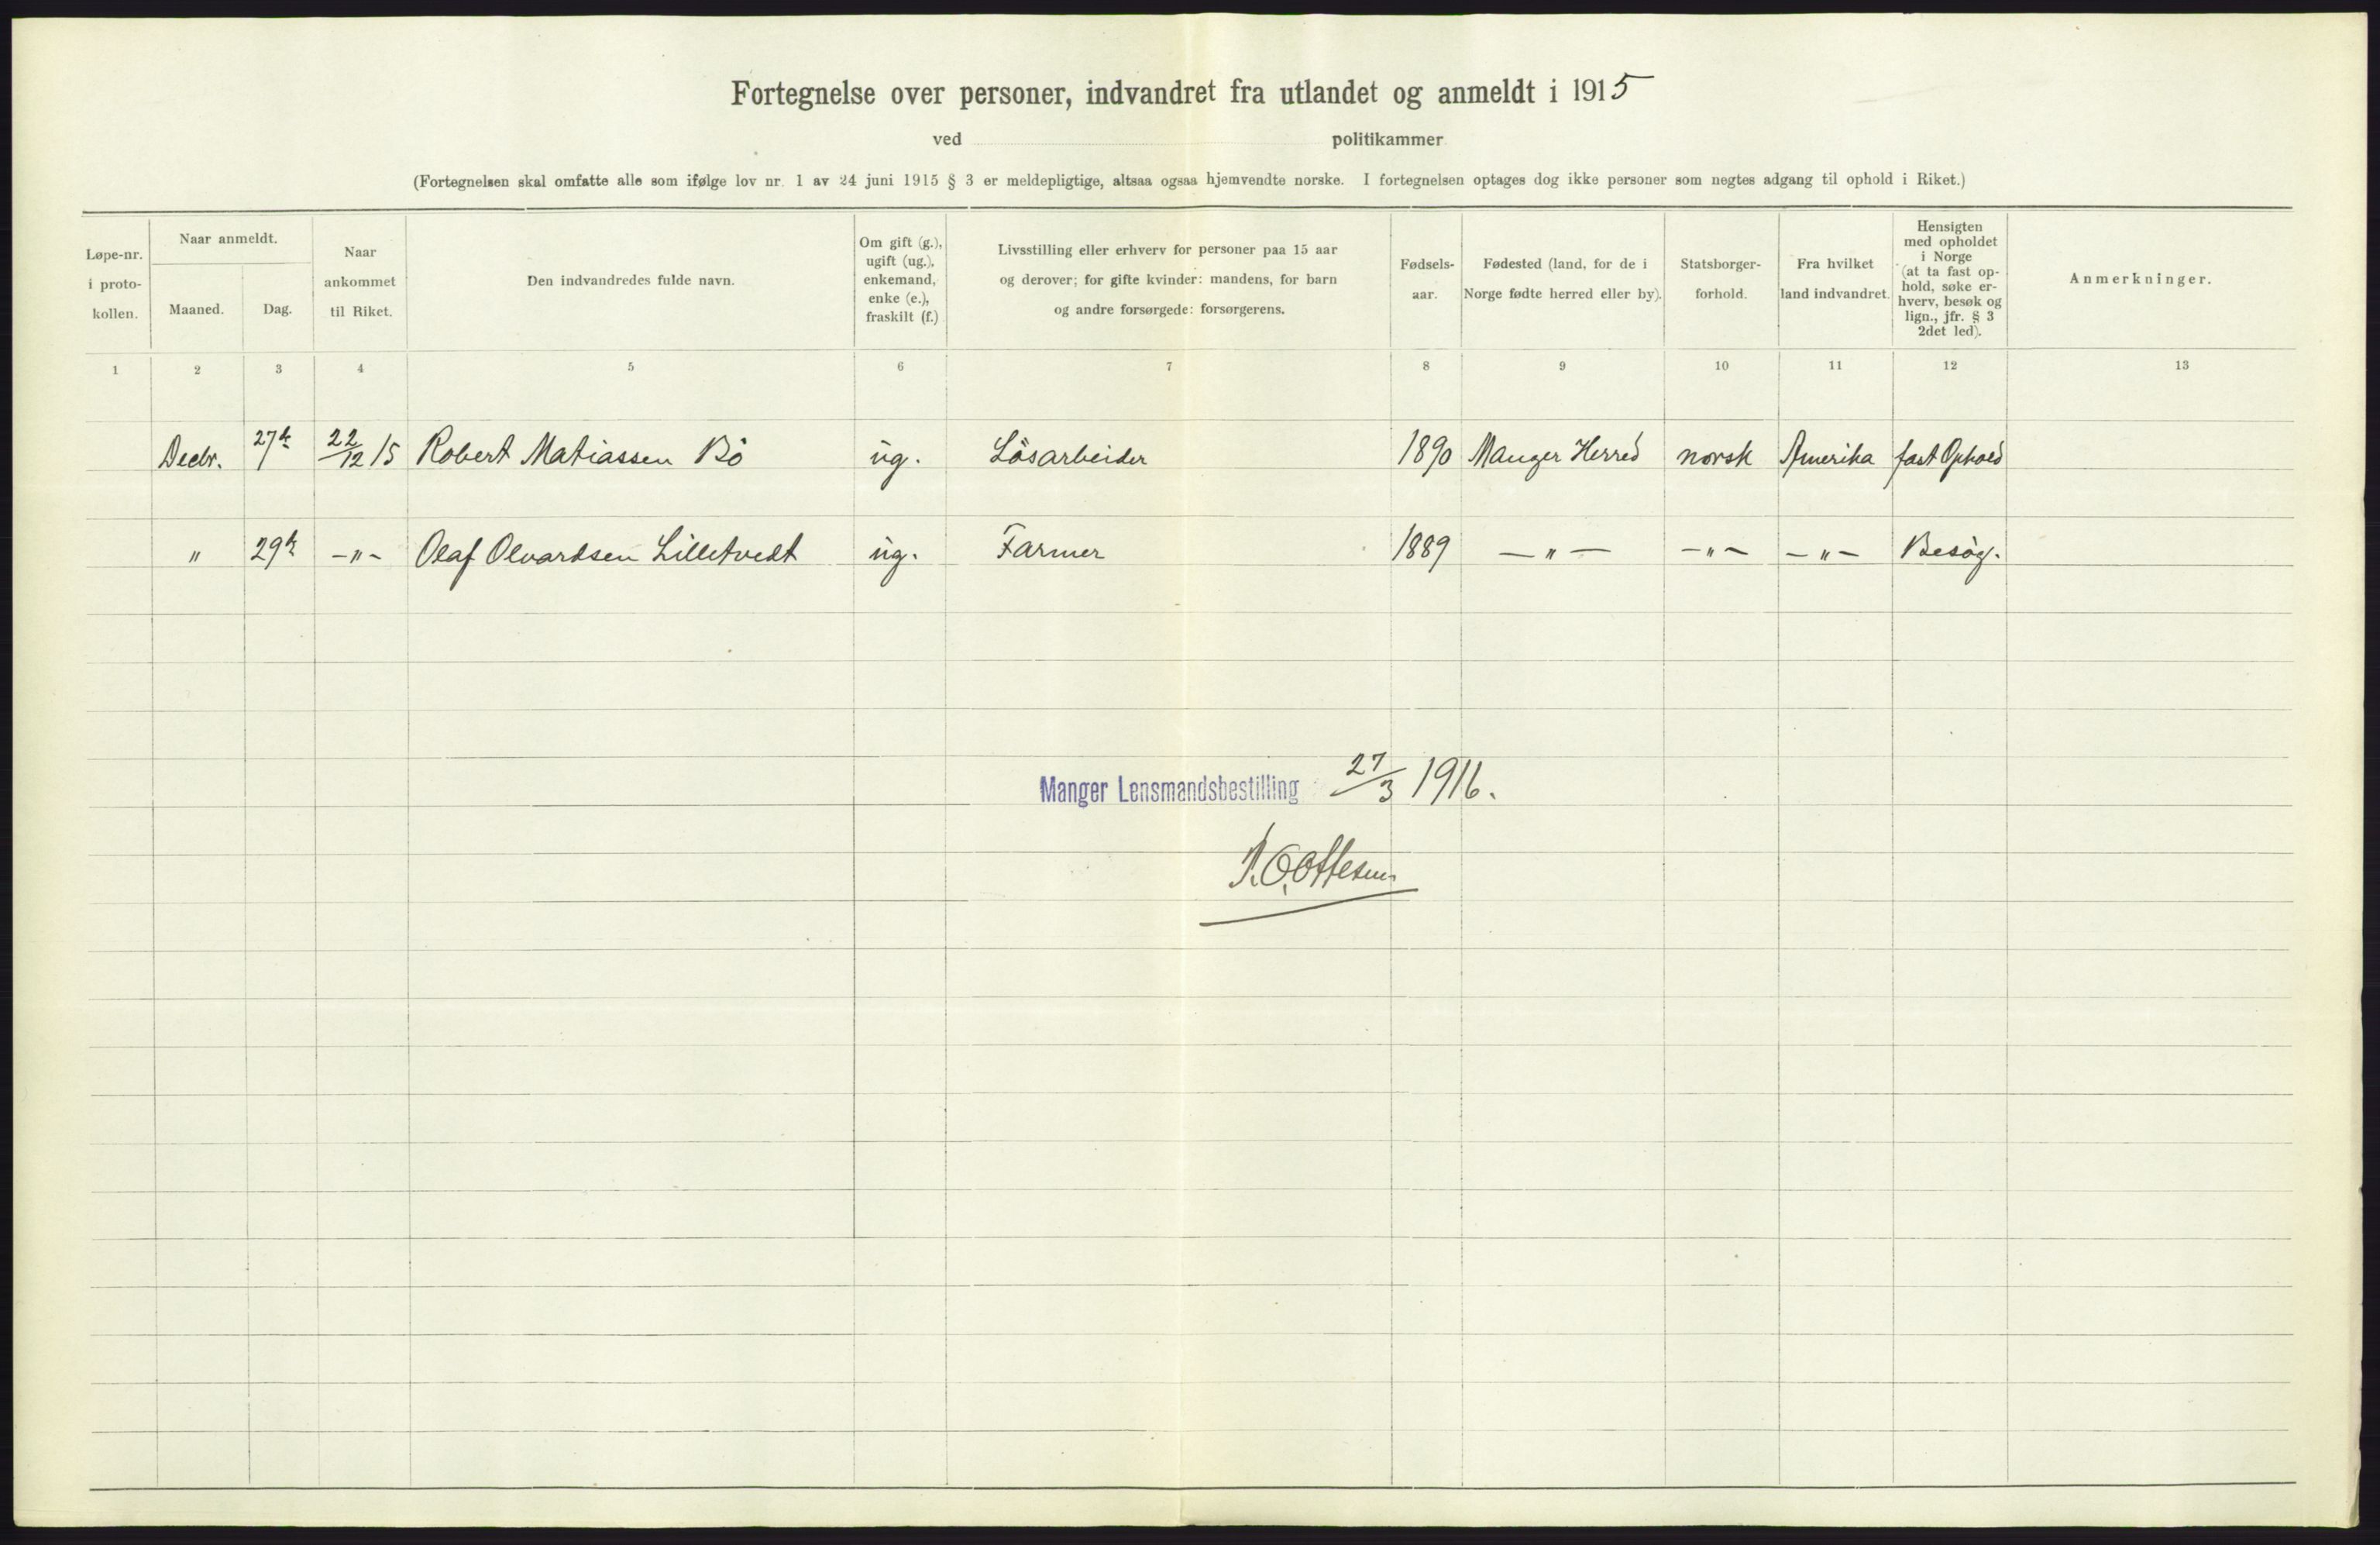 Fortegnelse over personer, indvandret fra utlandet og anmeldt i 1915
ved politikammer
(Fortegnelsen skal omfatte alle som ifølge lov nr. 1 av 24 juni 1915 § 3 er meldepligtige, altsaa ogsaa hjemvendte norske. I fortegnelsen optages dog ikke personer som negtes adgang til ophold i Riket.)
Løpe-nr.
i proto-
kollen.
Naar anmeldt.
Maaned.
Dag.
Naar
ankommet
til Riket.
Den indvandredes fulde navn.
Om gift (g.),
ugift (ug.),
enkemand,
enke (e.),
fraskilt (f.)
Livsstilling eller erhverv for personer paa 15 aar
og derover; for gifte kvinder: mandens, for barn
og andre forsørgede: forsørgerens.
Fødsels-
aar.
Fødested (land, for de i
Norge fødte herred eller by).
Statsborger-
forhold.
Fra hvilket
land indvandret.
Hensigten
med opholdet
i Norge
(at ta fast op-
hold, søke er-
hverv, besøk og
lign., jfr. § 3
2det led).
Anmerkninger.
1 2 3 4 5 6 7 8 9 10 11 12 13
Decbr. 27de 22/12 15 Robert Matiassen Bö ug. Lösarbeider 1890 Manger Herred norsk Amerika fast Ophold
" 29de -"- Olaf Olvardsen Lilletvedt ug. Farmer 1889 -"- -"- -"- Besög.
Manger Lensmandsbestilling 27/3 1916.
Ottesen